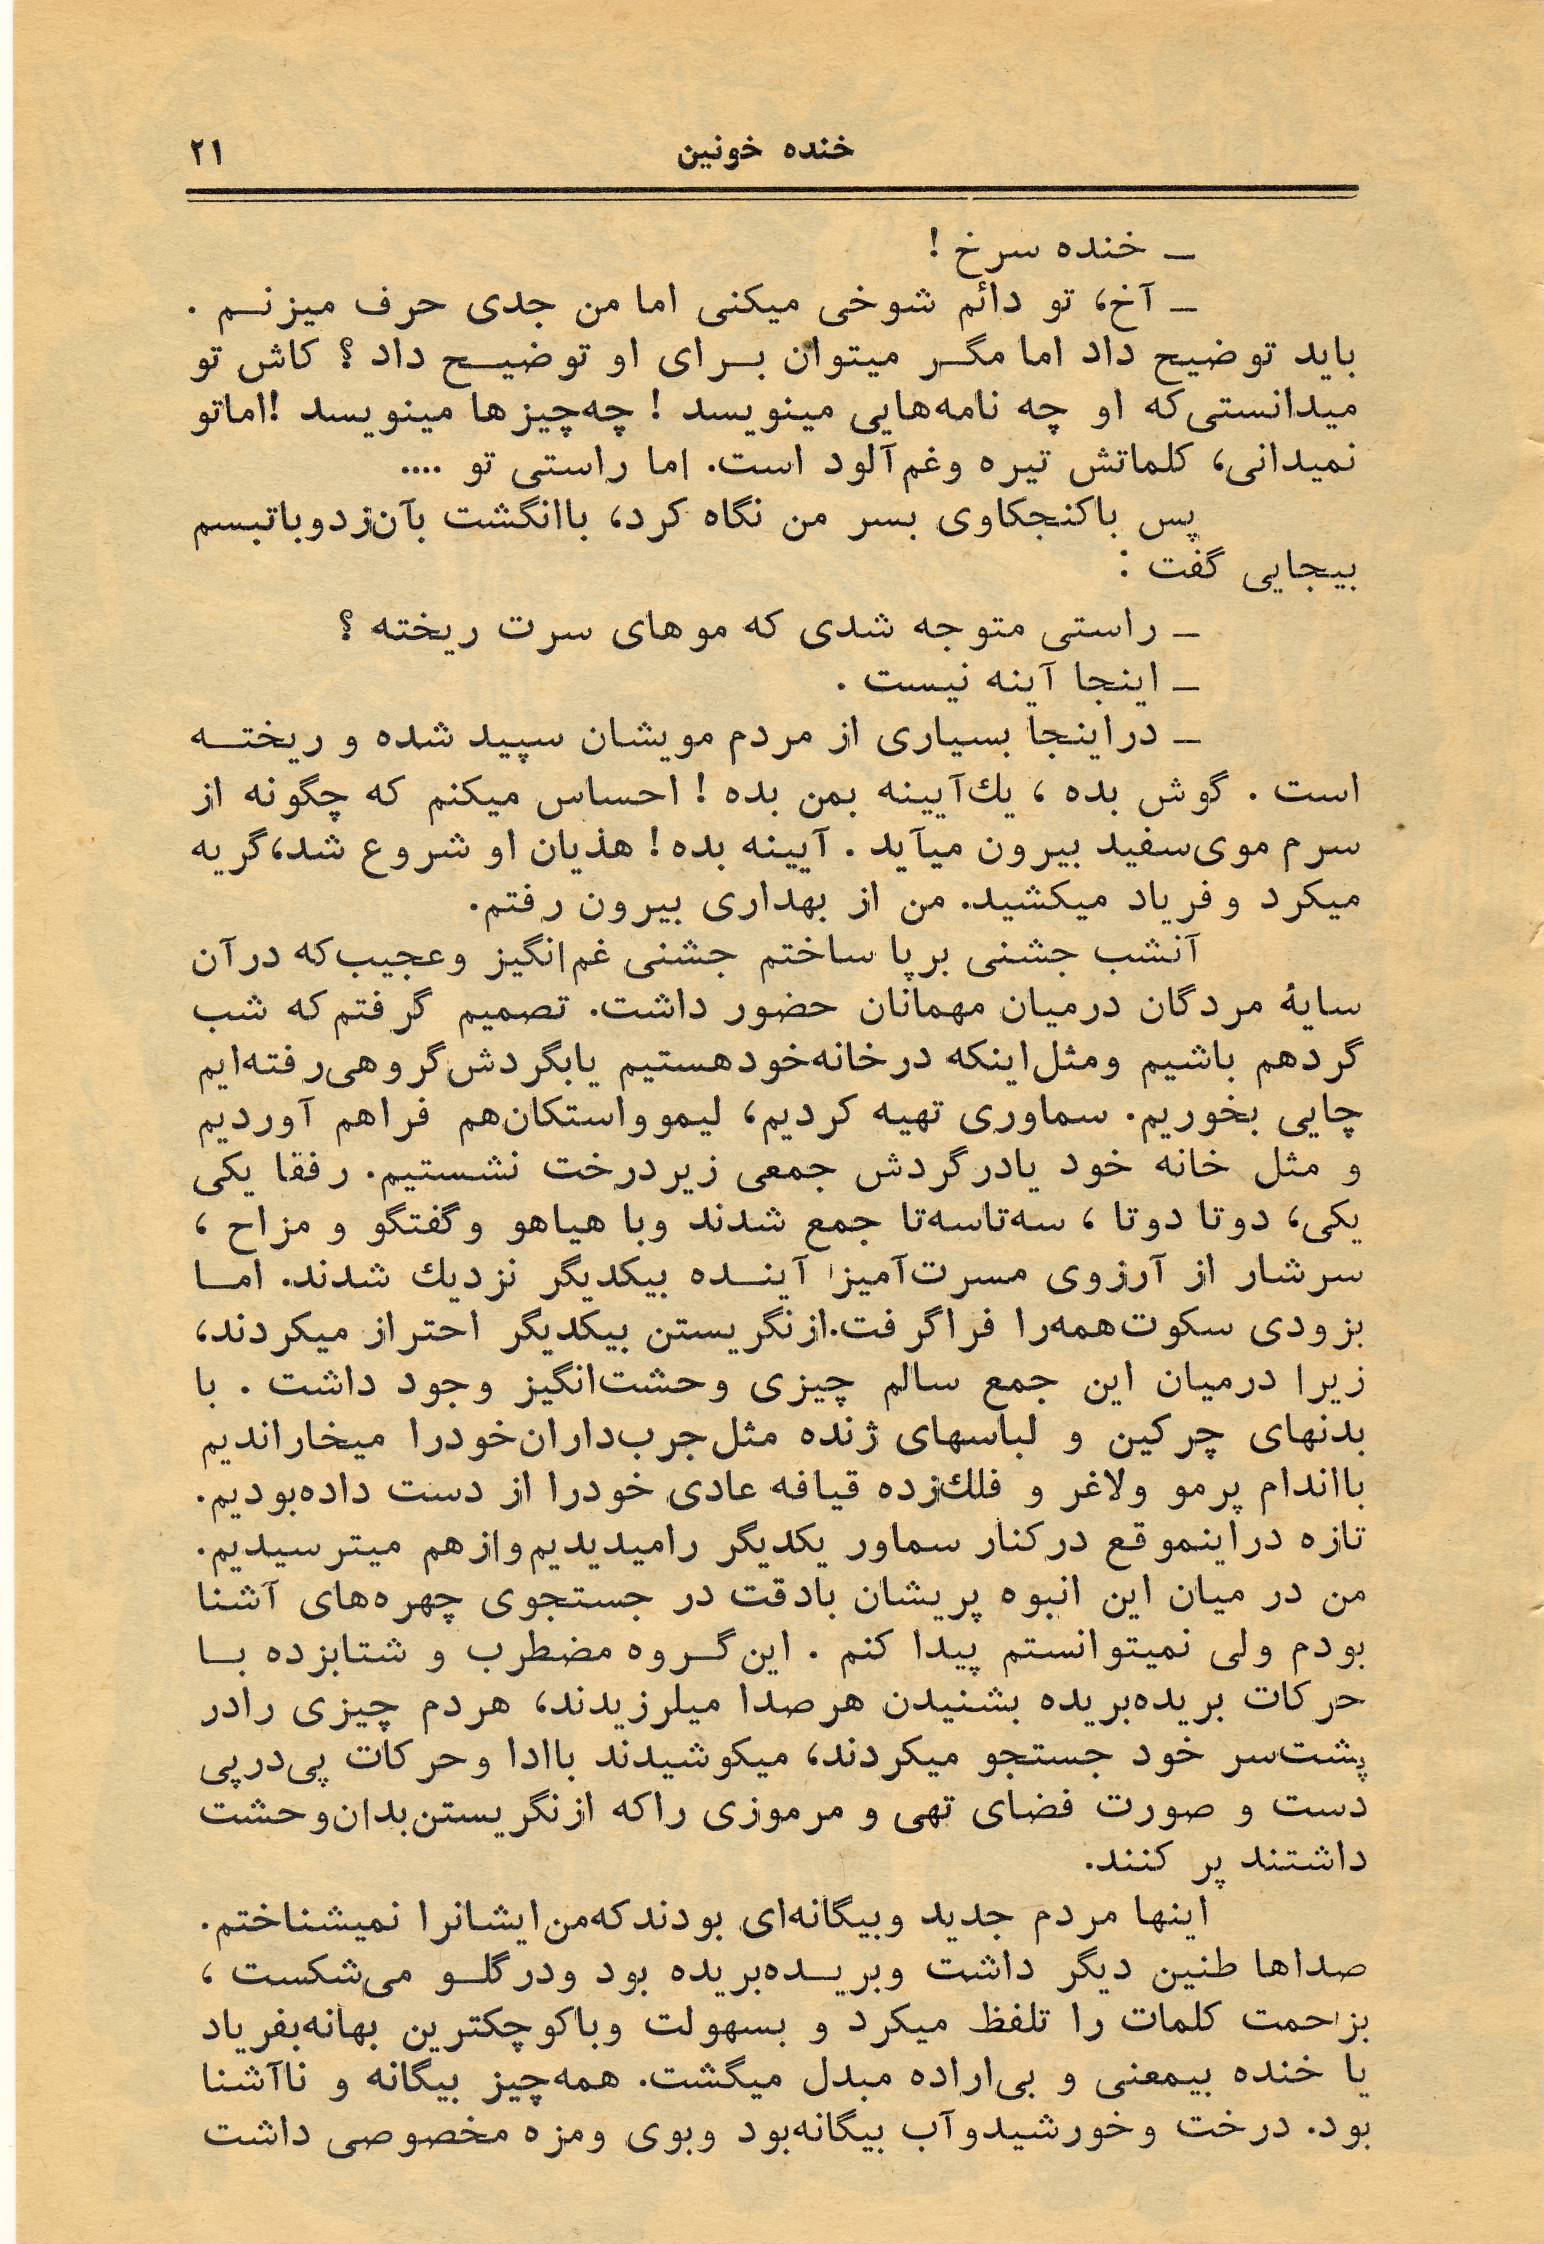 خنده خونین ۲۱
ـ خنده سرخ !
ـ آخ، تو دائم شوخی میکنی اما من جدی حرف میزنـم .
باید توضیح داد اما مگـر میتوان بـرای او توضیـح داد ؟ کاش تو
میدانستی‌که او چه نامه‌هایی مینویسد ! چه‌چیزها مینویسد !اماتو
نمیدانی، کلماتش تیره وغم‌آلود است. اما راستی تو ....
پس باکنجکاوی بسر من نگاه کرد، باانگشت بآن‌زدوباتبسم
بیجایی گفت :
ـ راستی متوجه شدی که موهای سرت ریخته ؟
ـ اینجا آینه نیست .
ـ دراینجا بسیاری از مردم مویشان سپید شده و ریختـه
است . گوش بده ، یك‌آیینه بمن بده ! احساس میکنم که چگونه از
سرم موی‌سفید بیرون میآید . آیینه بده! هذیان او شروع شد،گریه
میکرد وفریاد میکشید. من از بهداری بیرون رفتم.
آنشب جشنی برپا ساختم جشنی غم‌انگیز وعجیب‌که درآن
سایهٔ مردگان درمیان مهمانان حضور داشت. تصمیم گرفتم‌که شب
گردهم باشیم ومثل‌اینکه درخانه‌خودهستیم یابگردش‌گروهی‌رفته‌ایم
چایی بخوریم. سماوری تهیه کردیم، لیموواستکان‌هم فراهم آوردیم
و مثل خانه خود یادرگردش جمعی زیردرخت نشستیم. رفقا یکی
یکی، دوتا دوتا ، سه‌تاسه‌تا جمع شدند وبا هیاهو وگفتگو و مزاح ،
سرشار از آرزوی مسرت‌آمیز آینـده بیکدیگر نزدیك شدند. امـا
بزودی سکوت‌همه‌را فراگرفت.ازنگریستن بیکدیگر احتراز میکردند،
زیرا درمیان این جمع سالم چیزی وحشت‌انگیز وجود داشت . با
بدنهای چرکین و لباسهای ژنده مثل‌جرب‌داران‌خودرا میخاراندیم
بااندام پرمو ولاغر و فلك‌زده قیافه عادی خودرا از دست داده‌بودیم.
تازه دراینموقع درکنار سماور یکدیگر رامیدیدیم‌وازهم میترسیدیم.
من در میان این انبوه پریشان بادقت در جستجوی چهره‌های آشنا
بودم ولی نمیتوانستم پیدا کنم . این‌گـروه مضطرب و شتابزده بـا
حرکات بریده‌بریده بشنیدن هرصدا میلرزیدند، هردم چیزی رادر
پشت‌سر خود جستجو میکردند، میکوشیدند باادا وحرکات پی‌درپی
دست و صورت فضای تهی و مرموزی راکه ازنگریستن‌بدان‌وحشت
داشتند پر کنند.
اینها مردم جدید وبیگانه‌ای بودندکه‌من‌ایشانرا نمیشناختم.
صداها طنین دیگر داشت وبریـده‌بریده بود ودرگلـو می‌شکست ،
بزحمت کلمات را تلفظ میکرد و بسهولت وباکوچکترین بهانه‌بفریاد
یا خنده بیمعنی و بی‌اراده مبدل میگشت. همه‌چیز بیگانه و ناآشنا
بود. درخت وخورشیدوآب بیگانه‌بود وبوی ومزه مخصوصی داشت